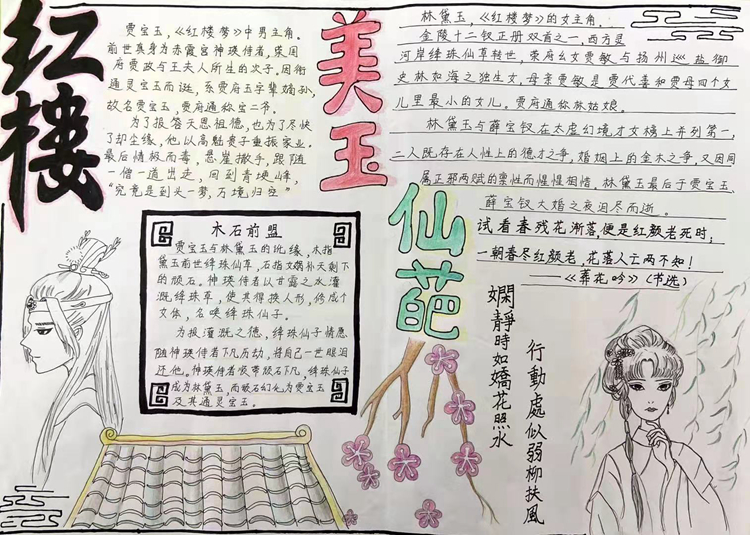 红楼
美玉
仙葩
贾宝玉，《红楼梦》中男主角。
前世真身为赤霞宫神瑛侍者，荣国
府贾政与王夫人所生的次子。因衔
通灵宝玉而诞，系贾府玉字辈嫡孙，
故名贾宝玉，贾府通称宝二爷。
为了报答天恩祖德，也为了尽快
了却尘缘，他以高魁贵子重振家业。
最后情极而毒，悬崖撒手，跟随
一僧一道出走，回到青埂峰，
“究竟是到头一梦，万境归空”
木石前盟
贾宝玉与林黛玉的仙缘，木指
黛玉前世绛珠仙草，石指女娲补天剩下
的顽石。神瑛侍者以甘露之水灌
溉绛珠草，使其得换人形，修成个
女体，名唤绛珠仙子。
为报灌溉之德，绛珠仙子情愿
随神瑛侍者下凡历劫，将自己一世眼泪
还他。神瑛侍者夹带顽石下凡，绛珠仙子
成为林黛玉，而顽石幻化为贾宝玉
及其通灵宝玉。
林黛玉，《红楼梦》的女主角，
金陵十二钗正册双首之一，西方灵
河岸绛珠仙草转世，荣府幺女贾敏与扬州巡盐御
史林如海之独生女，母亲贾敏是贾代善和贾母四个女
儿里最小的女儿。贾府通称林姑娘。
林黛玉与薛宝钗在太虚幻境才女榜上并列第一，
二人既存在人性上的德才之争，婚姻上的金木之争，又因同
属正邪两赋的禀性而惺惺相惜。林黛玉最后于贾宝玉、
薛宝钗大婚之夜泪尽而逝。
试看春残花渐落，便是红颜老死时；
一朝春尽红颜老，花落人亡两不知！
——《葬花吟》（节选）
嫻靜時如嬌花照水
行動處似弱柳扶風